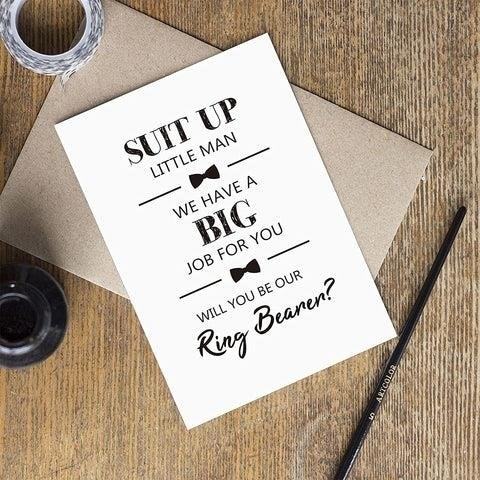 SUIT UP
LITTLE MAN
WE HAVE A
BIG
JOB FOR YOU
WILL YOU BE OUR
Ring Bearer?
ARTCOLOR 5